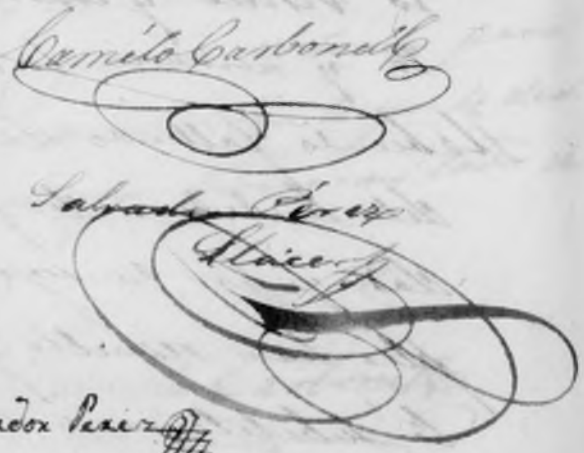 Camilo Carbonell
Salvador Pérez
Llácer
ador Perez